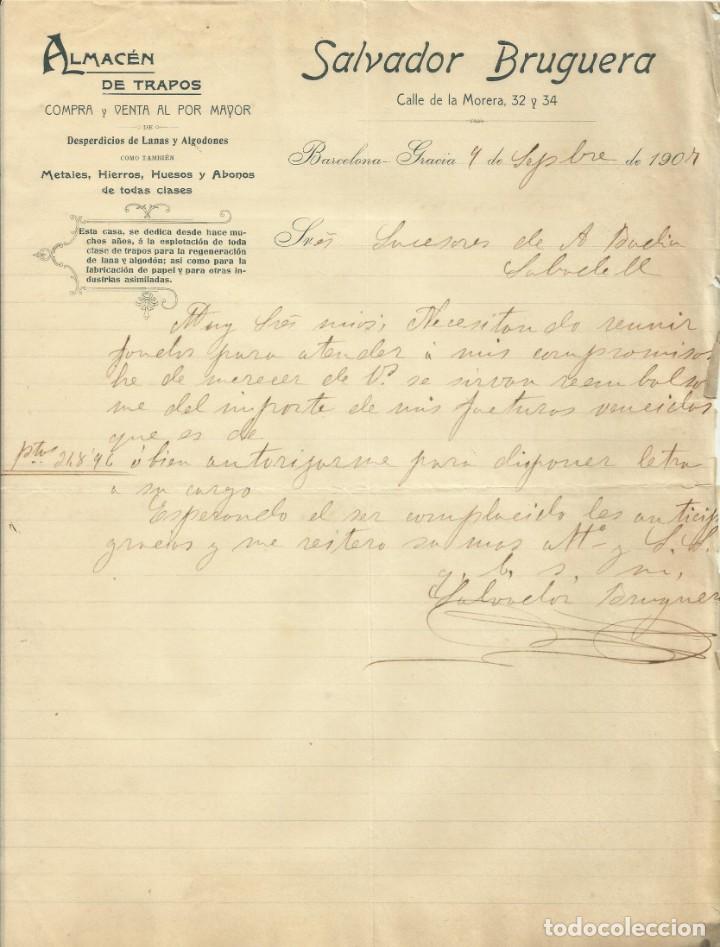 ALMACÉN
DE TRAPOS
COMPRA y VENTA AL POR MAYOR
DE
Desperdicios de Lanas y Algodones
COMO TAMBIÉN
Metales, Hierros, Huesos y Abonos
de todas clases
Esta casa, se dedica desde hace mu-
chos años, á la esplotación de toda
clase de trapos para la regeneración
de lana y algodón; asi como para la
fabricación de papel y para otras in-
dustrias asimiladas.
Salvador Bruguera
Calle de la Morera, 32 y 34
Barcelona-Gracia de Sepbre de 190
Srés Sucesores de A Badia
Sabadell
Muy Srés mios; Necesitando reunir
fondos para atender á mis compromisos
he de merecer de V.s se sirvan reembolsar
me del importe de mis facturas vencidas
que es de
ptas ó bien autorizarme para disponer letra
a su cargo
Esperando el ser complacido les anticipo
gracias y me reitero su mas Atto y S. S.
q. b. s. m.
Salvador Bruguera
todocoleccion